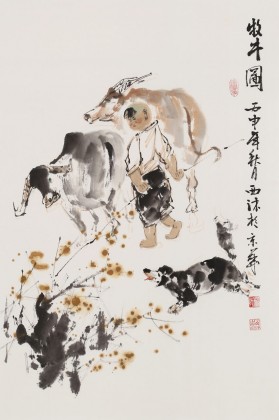 牧牛圖
丙申年秋月西沐於京華